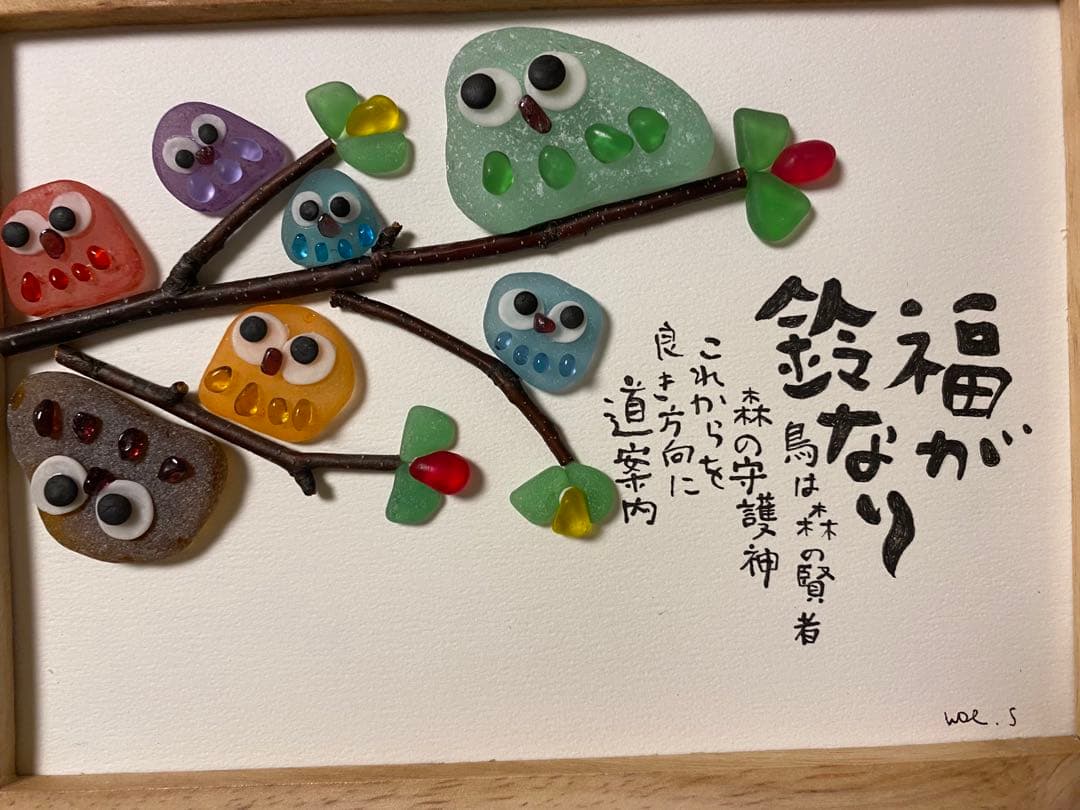 福が
鈴なり
鳥は森の賢者
森の守護神
これからを
良き方向に
道案内